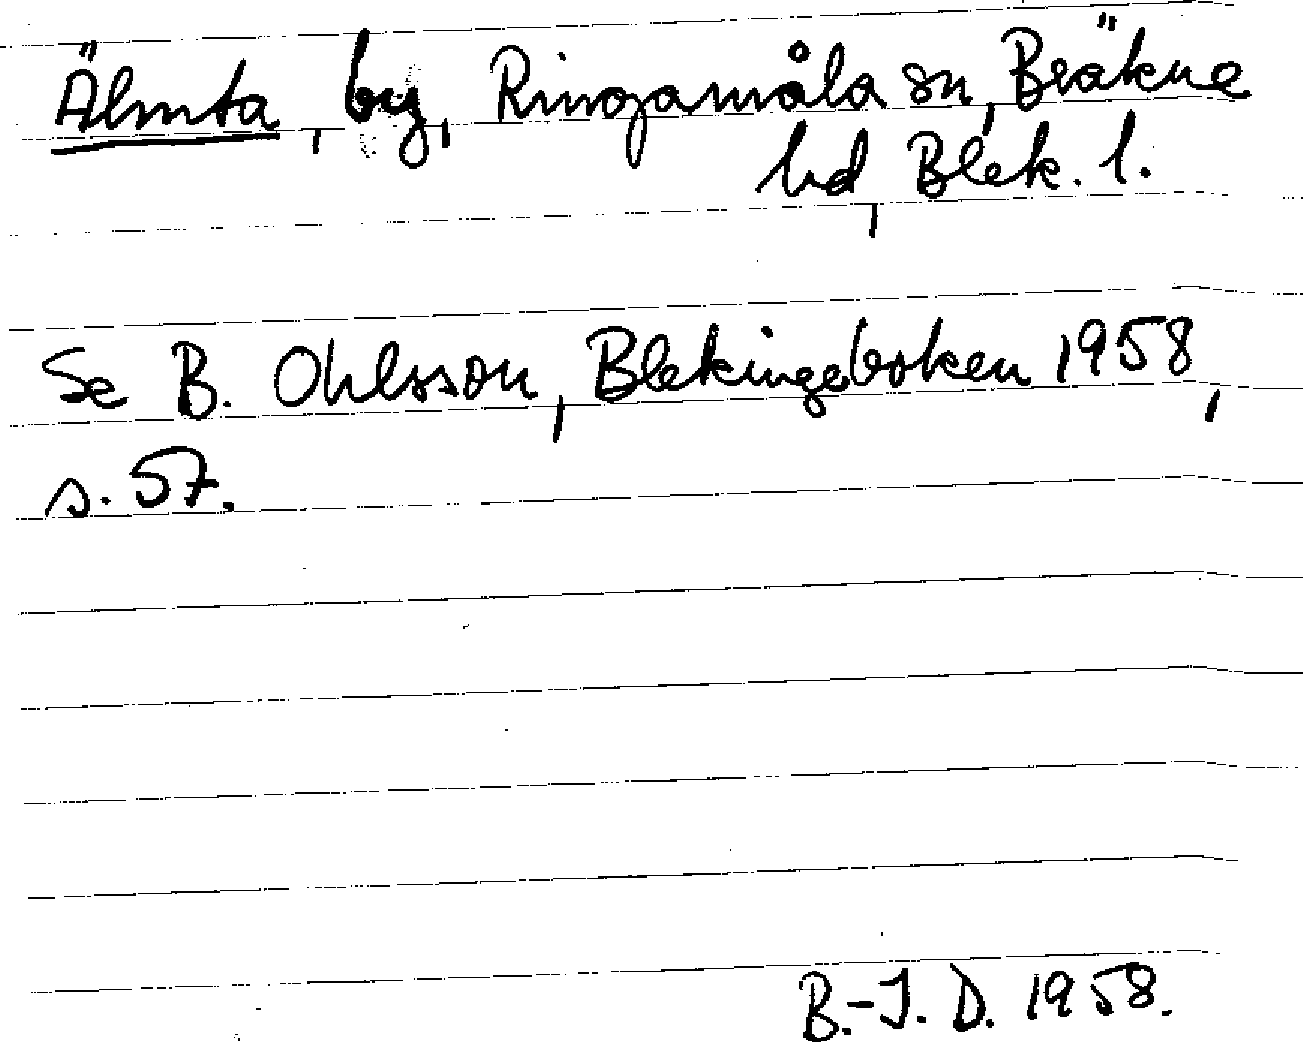 Älmta, by, Ringamåla sn, Bräkne
hd, Blek. l.
Se B. Ohlsson, Blekingeboken 1958,
s. 57.
B.-J. D. 1958.